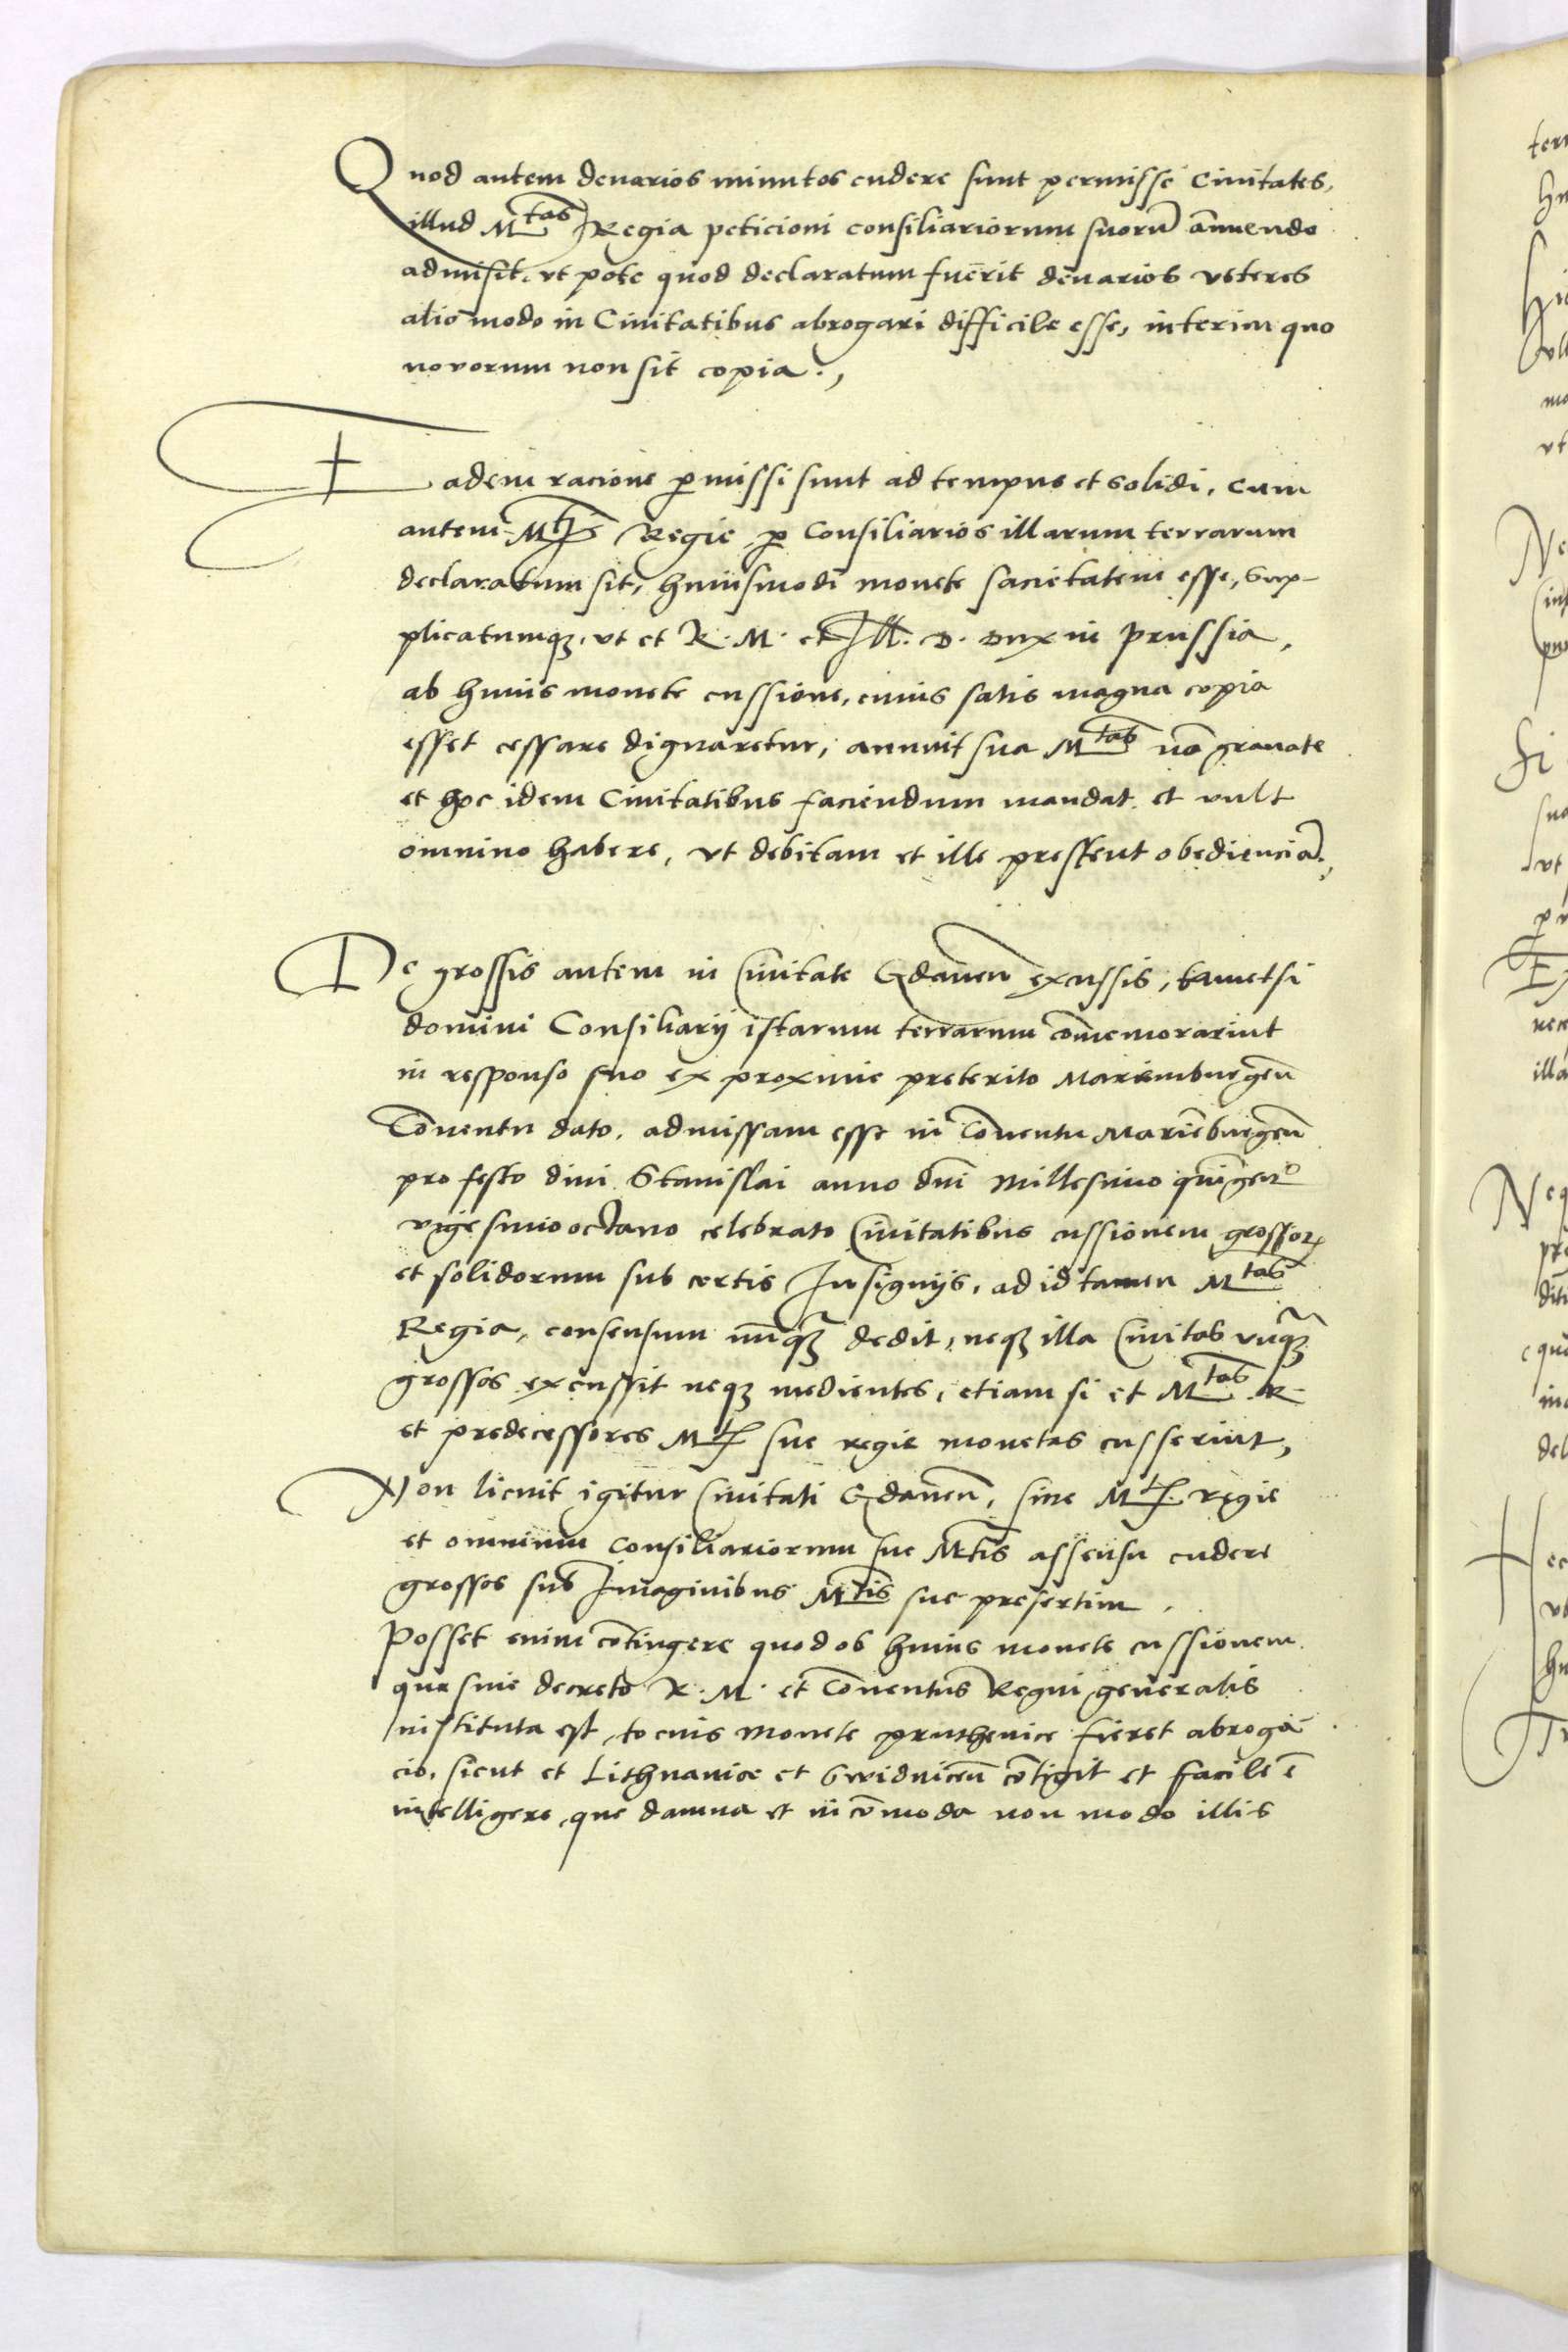 Quod autem denarios minutos cudere sunt permisse Ciuitates,
illud M^tas Regia peticioni consiliariorum suorū annuendo
admisit, vt pote quod declaratum fuerit denarios veteres
alio modo in Ciuitatibus abrogari difficile esse, interim quo
novorum non sit copia.,
Eadem racione ꝑmissi sunt ad tempus et solidi, Cum
autem M^tis Regie ꝑ Consiliarios illarum terrarum
declaratum sit, huiusmodi monete sacietatem esse, Sup-
plicatumqꝫ, vt et R. M. et Ill. D. Dux in Prussia,
ab huius monete cussione, cuius satis magna copia
esset cessare dignaretur, annuit sua M^tas nō grauate
et hoc idem Ciuitatibus faciendum mandat et vult
omnino habere, vt debitam et ille prestent obedienciā.,
De grossis autem in Ciuitate Gdaneñ excussis, tametsi
domini Consiliarij istarum terrarum cōmemorarint
in responso suo ex proxime preterito Mariemburgeñ
Conuentu dato, admissam esse in Cōuentu Mariēburgeñ
pro festo diui Stanislai anno dñi Millesimo quīgent^o
vigesimooctauo celebrato Ciuitatibus cussionem grossoꝝ
et solidorum sub certis Insignijs, ad id tamen M^tas
Regia, consensum nūqꝫ dedit, neqꝫ illa Ciuitas vnqꝫ
grossos excussit neqꝫ medientes, etiam si et M^tas R.
et predecessores M^tis sue regie monetas cusserint,
Non licuit igitur Ciuitati Gdaneñ, sine M^tis regie
et omnium Consiliariorum sue M^tis assensu cudere
grossos sub Imaginibus M^tis sue presertim.
Posset enim cōtingere quod ob huius monete cussionem
que sine decreto R. M. et Cōuentus Regni generalis
instituta est, tocius Monete pruthenice fieret abroga
cio, sicut et Lithuanice et Swidniceñ cōtigit et facile ē
intelligere, que damna et incōmoda non modo illis